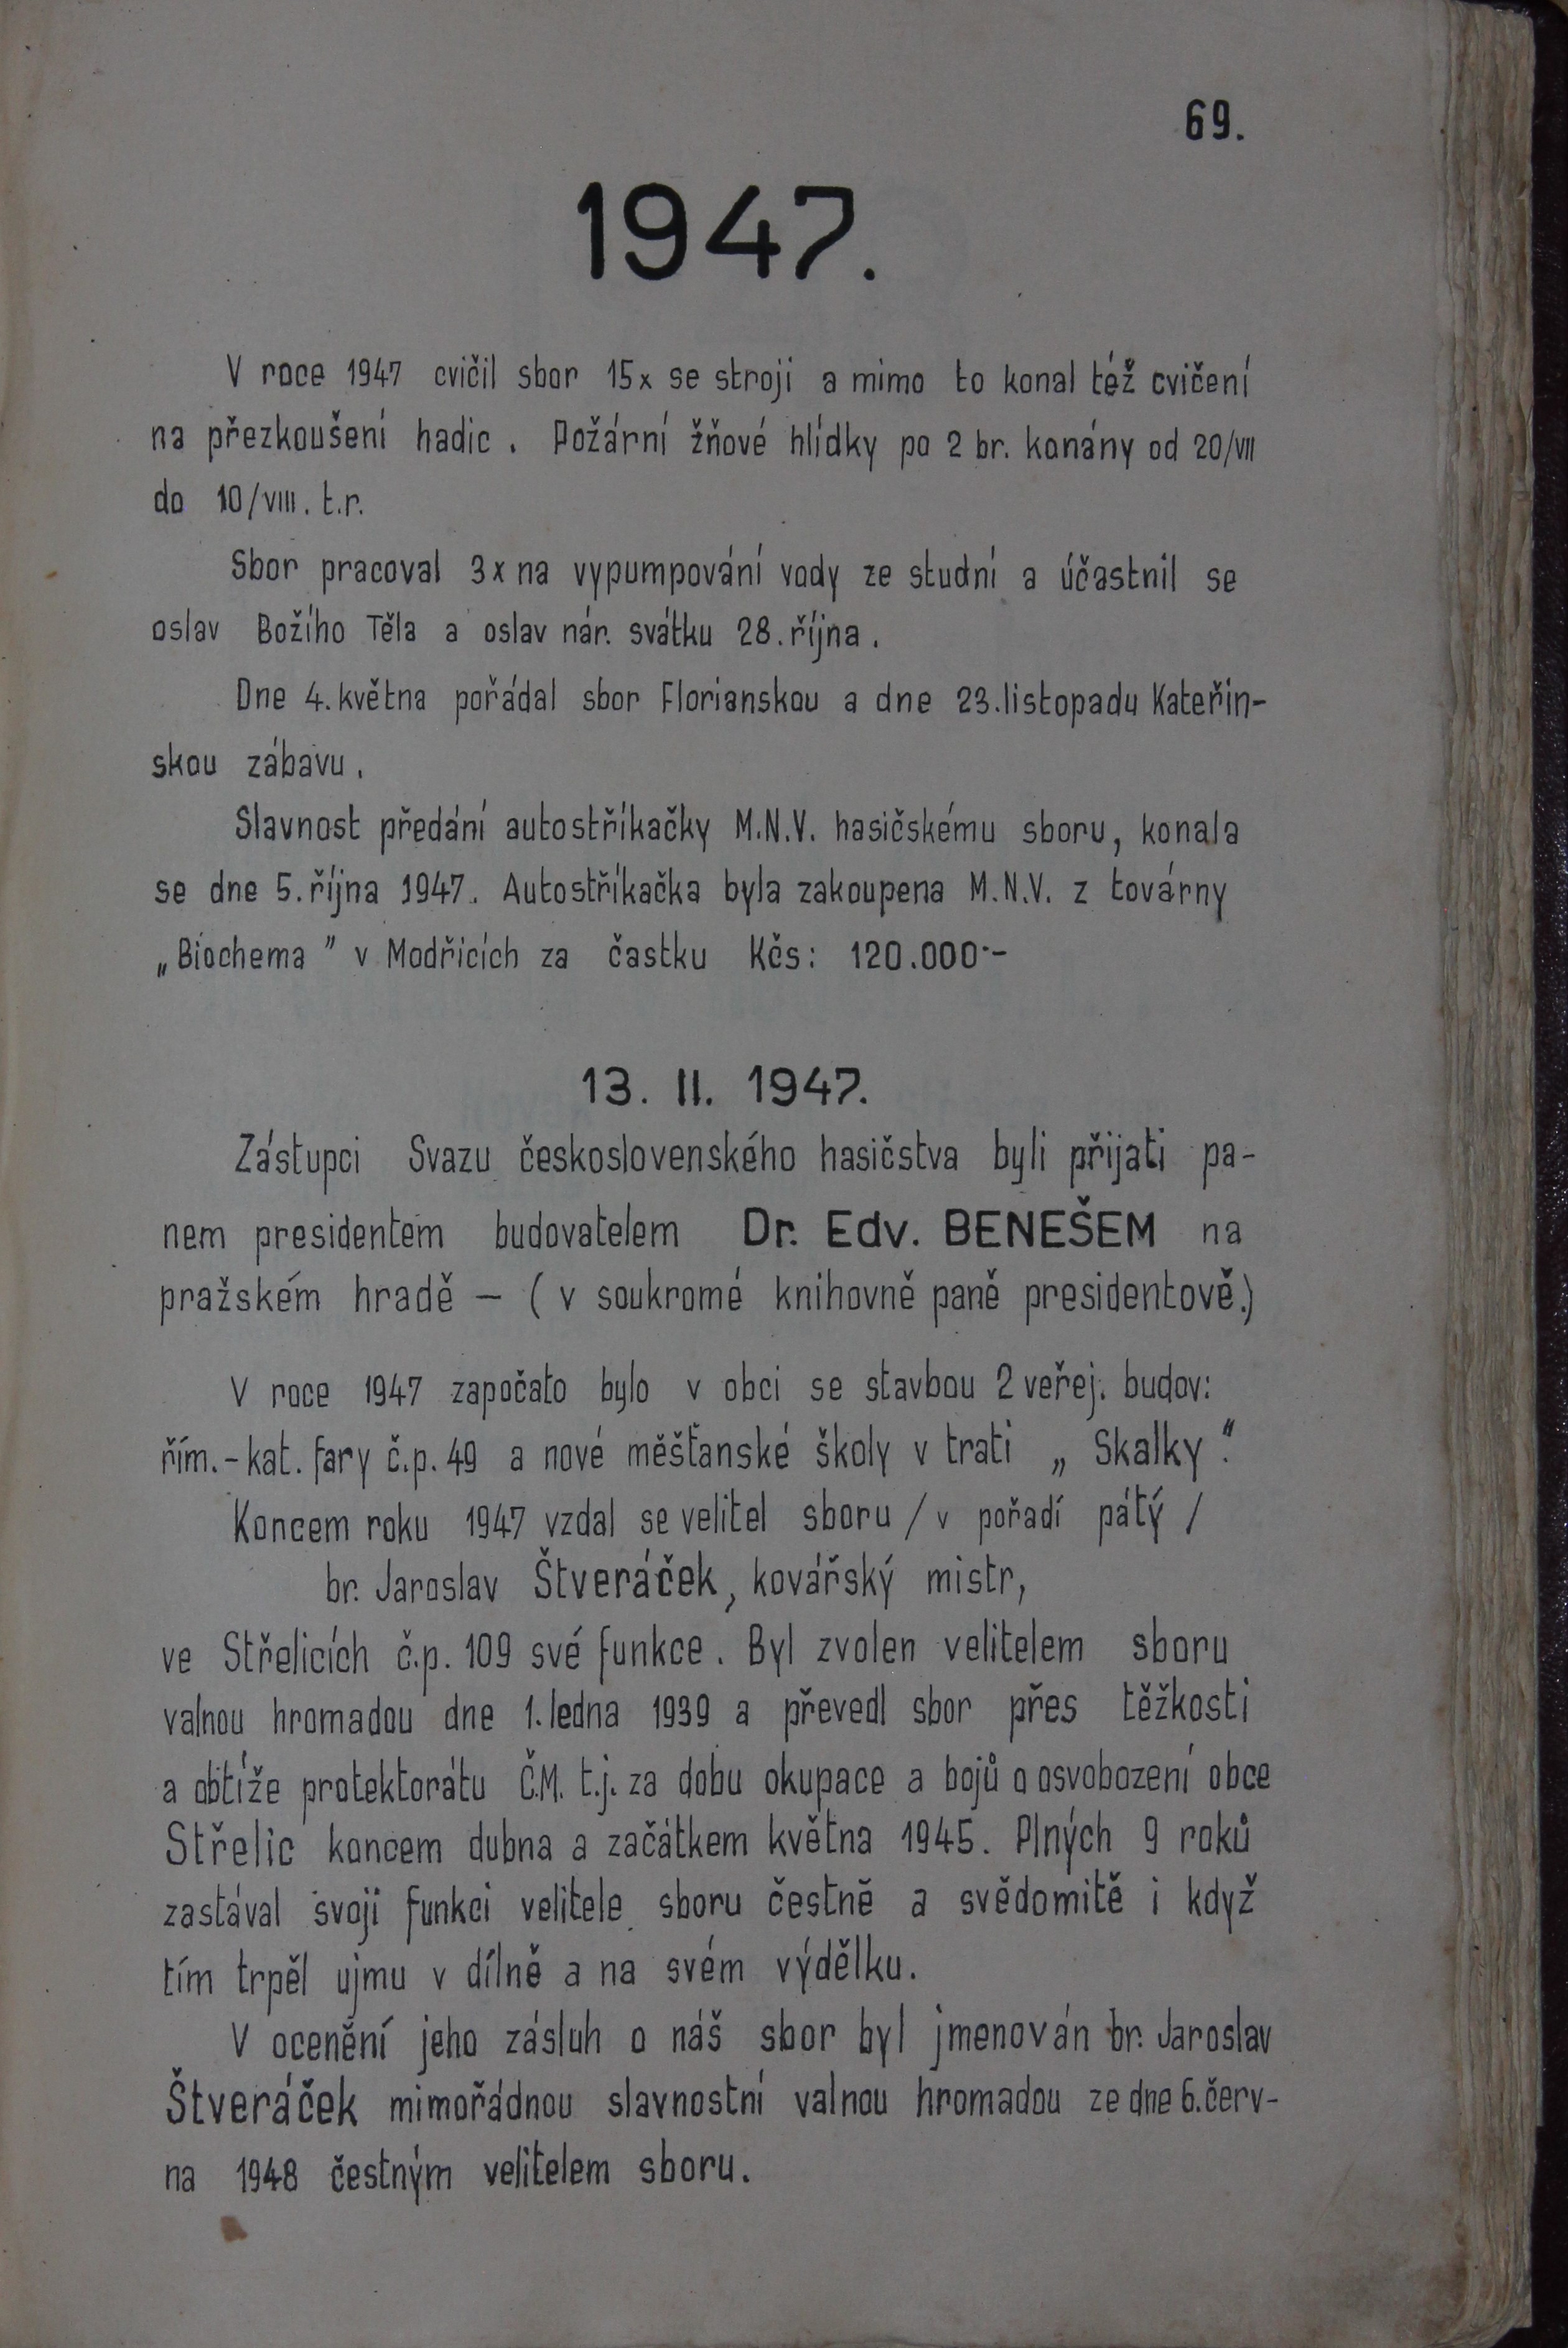 69.
1947.
V roce 1947 cvičil sbor 15x se stroji a mimo to konal též cvičení
na přezkoušení hadic. Požární žňové hlídky po 2 br. konány od 20/VII
do 10/VIII. t.r.
Sbor pracoval 3x na vypumpování vody ze studní a účastnil se
oslav Božího Těla a oslav nár. svátku 28. října.
Dne 4. května pořádal sbor Florianskou a dne 23. listopadu Kateřin-
skou zábavu.
Slavnost předání autostříkačky M.N.V. hasičskému sboru, konala
se dne 5. října 1947. Autostříkačka byla zakoupena M.N.V. z továrny
„Biochema" v Modřicích za častku Kčs: 120.000·-
13. II. 1947.
Zástupci Svazu československého hasičstva byli přijati pa-
nem presidentem budovatelem Dr. Edv. BENEŠEM na
pražském hradě – ( v soukromé knihovně paně presidentově.)
V roce 1947 započato bylo v obci se stavbou 2 veřej. budov:
řím.-kat. fary č.p. 49 a nové měšťanské školy v trati „ Skalky".
Koncem roku 1947 vzdal se velitel sboru / v pořadí pátý /
br. Jaroslav Štveráček, kovářský mistr,
ve Střelicích č.p. 109 své funkce. Byl zvolen velitelem sboru
valnou hromadou dne 1. ledna 1939 a převedl sbor přes těžkosti
a obtíže protektorátu Č.M. t.j. za dobu okupace a bojů o osvobození obce
Střelic koncem dubna a začátkem května 1945. Plných 9 roků
zastával svoji funkci velitele sboru čestně a svědomitě i když
tím trpěl ujmu v dílně a na svém výdělku.
V ocenění jeho zásluh o náš sbor byl jmenován br. Jaroslav
Štveráček mimořádnou slavnostní valnou hromadou ze dne 6. červ-
na 1948 čestným velitelem sboru.